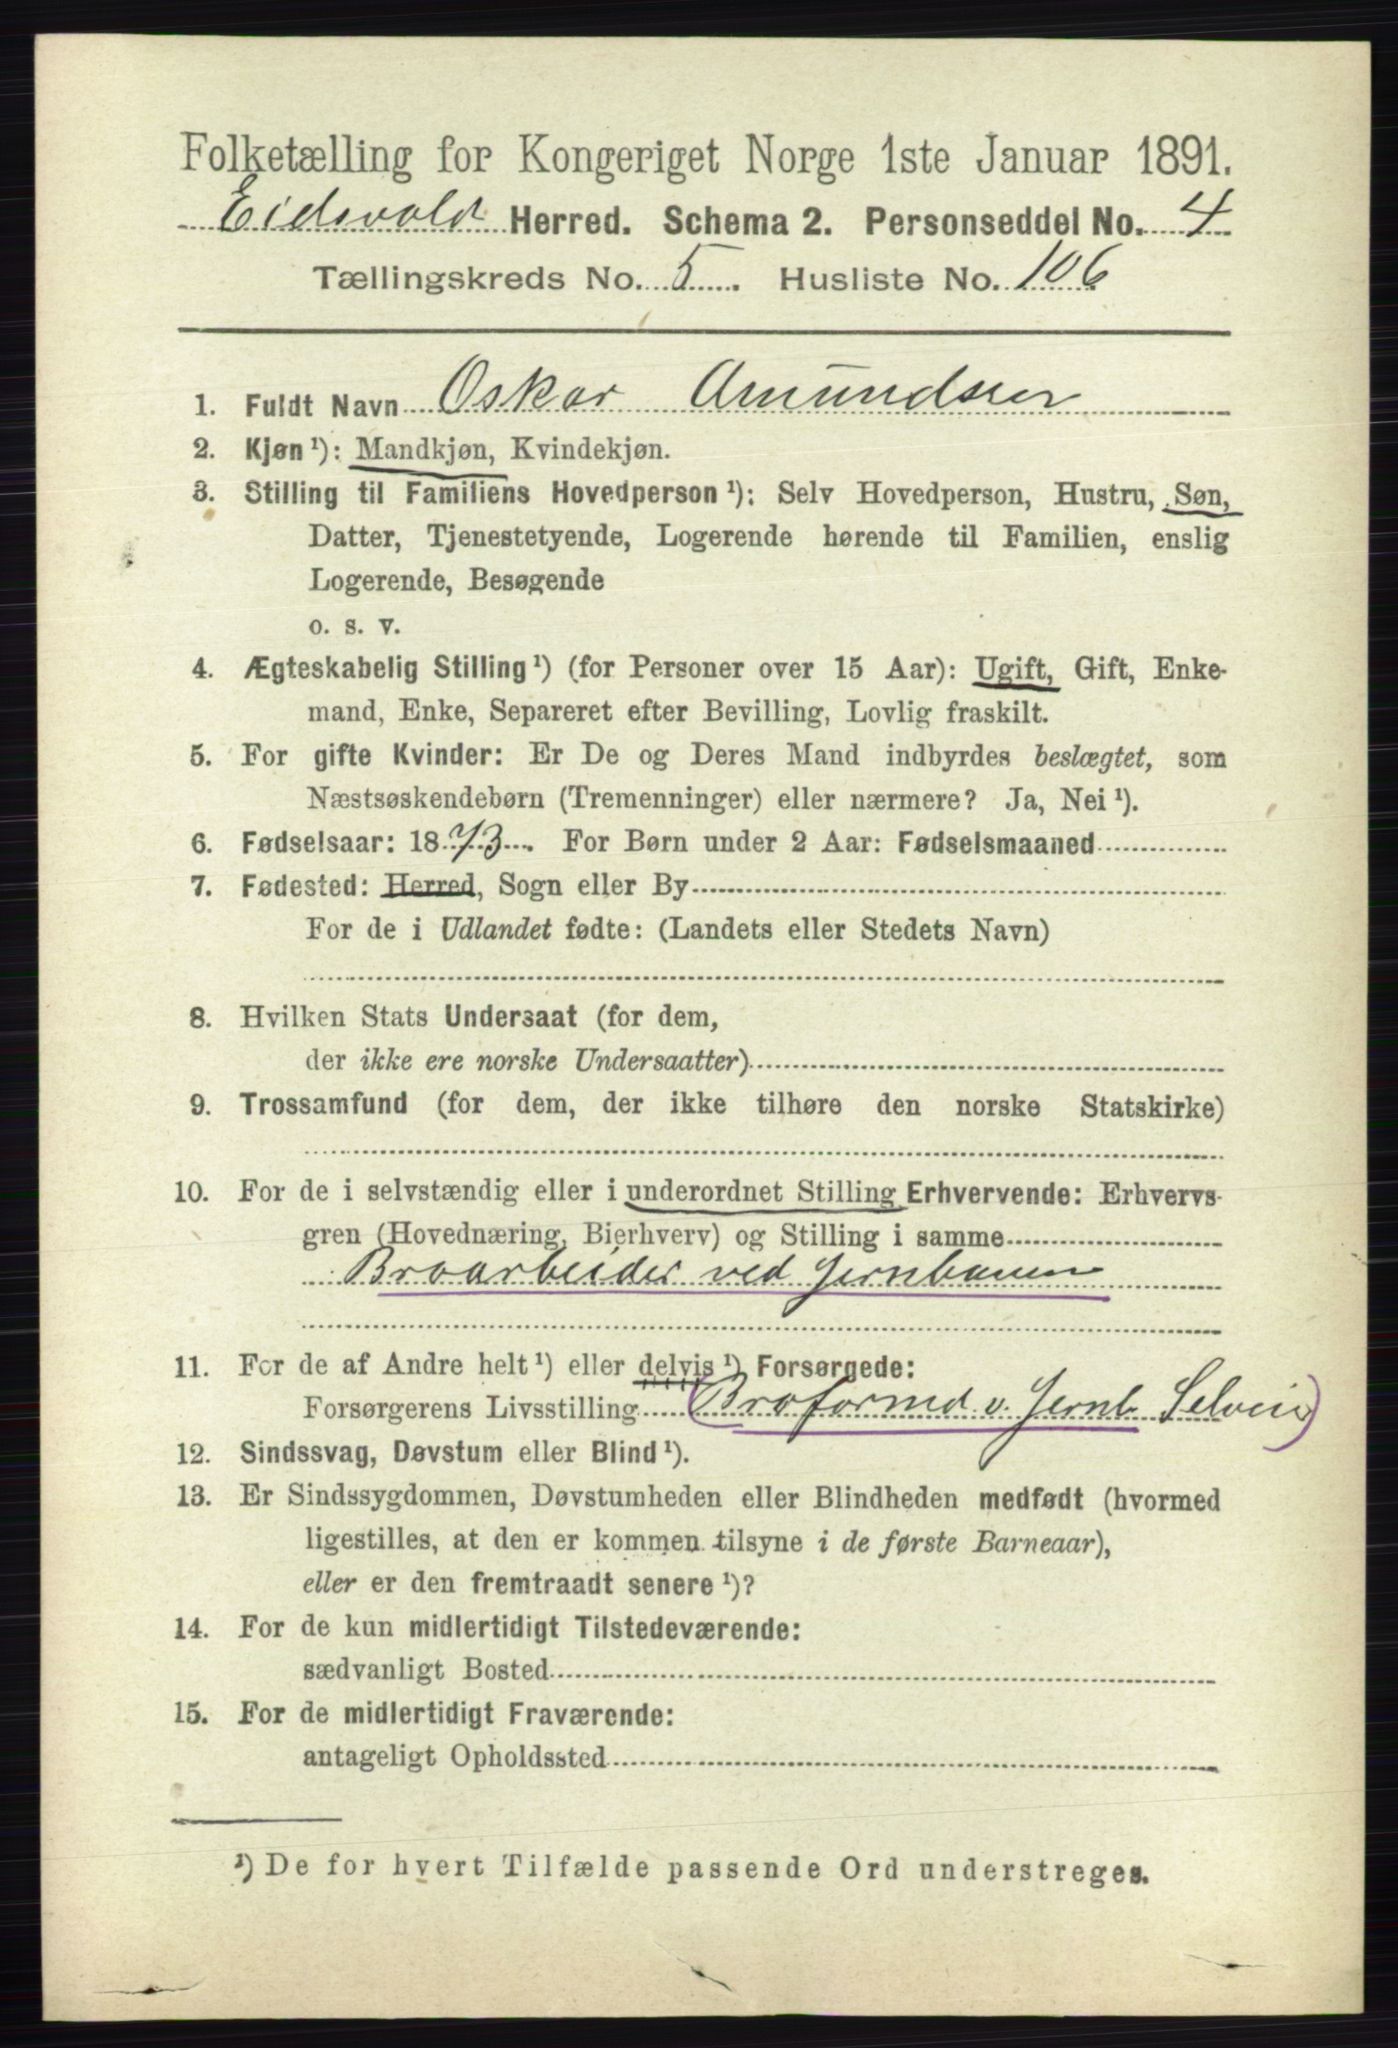 Folketælling for Kongeriget Norge 1ste Januar 1891.
Eidsvold Herred. Schema 2. Personseddel No. 4
Tællingskreds No. 5. Husliste No. 106
1. Fuldt Navn Oskar Amundsen
2. Kjøn¹): Mandkjøn, Kvindekjøn.
3. Stilling til Familiens Hovedperson¹): Selv Hovedperson, Hustru, Søn,
Datter, Tjenestetyende, Logerende hørende til Familien, enslig
Logerende, Besøgende
o. s. v.
4. Ægteskabelig Stilling¹) (for Personer over 15 Aar): Ugift, Gift, Enke-
mand, Enke, Separeret efter Bevilling, Lovlig fraskilt.
5. For gifte Kvinder: Er De og Deres Mand indbyrdes beslægtet, som
Næstsøskendebørn (Tremenninger) eller nærmere? Ja, Nei¹).
6. Fødselsaar: 1873. For Børn under 2 Aar: Fødselsmaaned
7. Fødested: Herred, Sogn eller By
For de i Udlandet fødte: (Landets eller Stedets Navn)
8. Hvilken Stats Undersaat (for dem,
der ikke ere norske Undersaatter)
9. Trossamfund (for dem, der ikke tilhøre den norske Statskirke)
10. For de i selvstændig eller i underordnet Stilling Erhvervende: Erhvervs-
gren (Hovednæring, Bierhverv) og Stilling i samme
Broarbeider ved Jernbanen
11. For de af Andre helt¹) eller delvis¹) Forsørgede:
Forsørgerens Livsstilling (Broformd v. Jernb.
12. Sindssvag, Døvstum eller Blind¹).
13. Er Sindssygdommen, Døvstumheden eller Blindheden medfødt (hvormed
ligestilles, at den er kommen tilsyne i de første Barneaar),
eller er den fremtraadt senere¹)?
14. For de kun midlertidigt Tilstedeværende:
sædvanligt Bosted
15. For de midlertidigt Fraværende:
antageligt Opholdssted
¹) De for hvert Tilfælde passende Ord understreges.